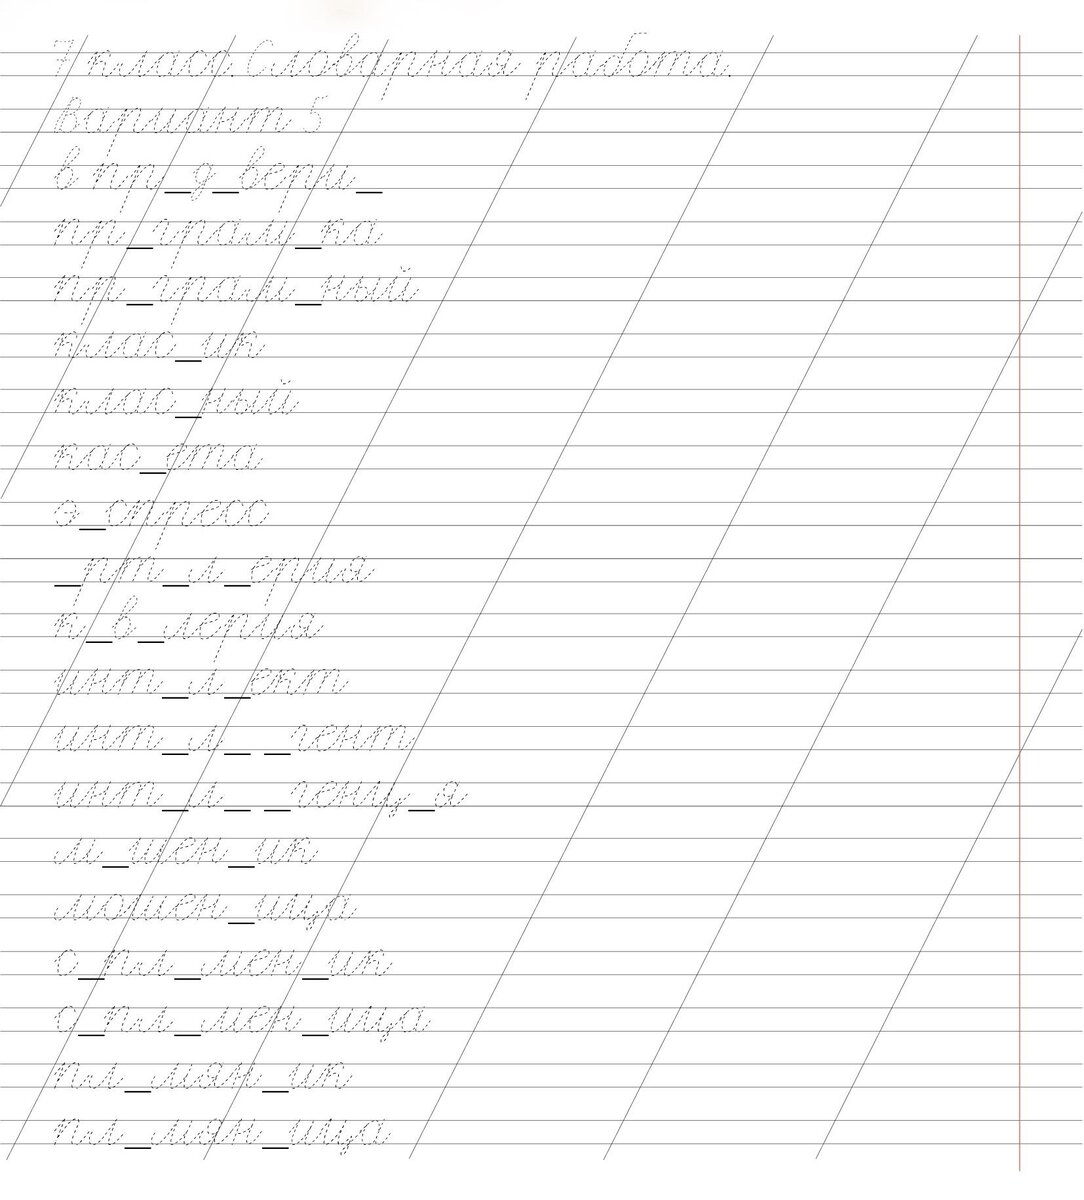 7 класс. Словарная работа.
Вариант 5
в пр_д_вери_
пр_грам_ка
пр_грам_ный
клас_ик
клас_ный
кас_ета
э_спресс
_рт_л_ерия
к_в_лерия
инт_л_ект
инт_л_ _гент
инт_л_ _генц_я
м_шен_ик
мошен_ица
с_пл_мен_ик
с_пл_мен_ица
пл_мян_ик
пл_мян_ица